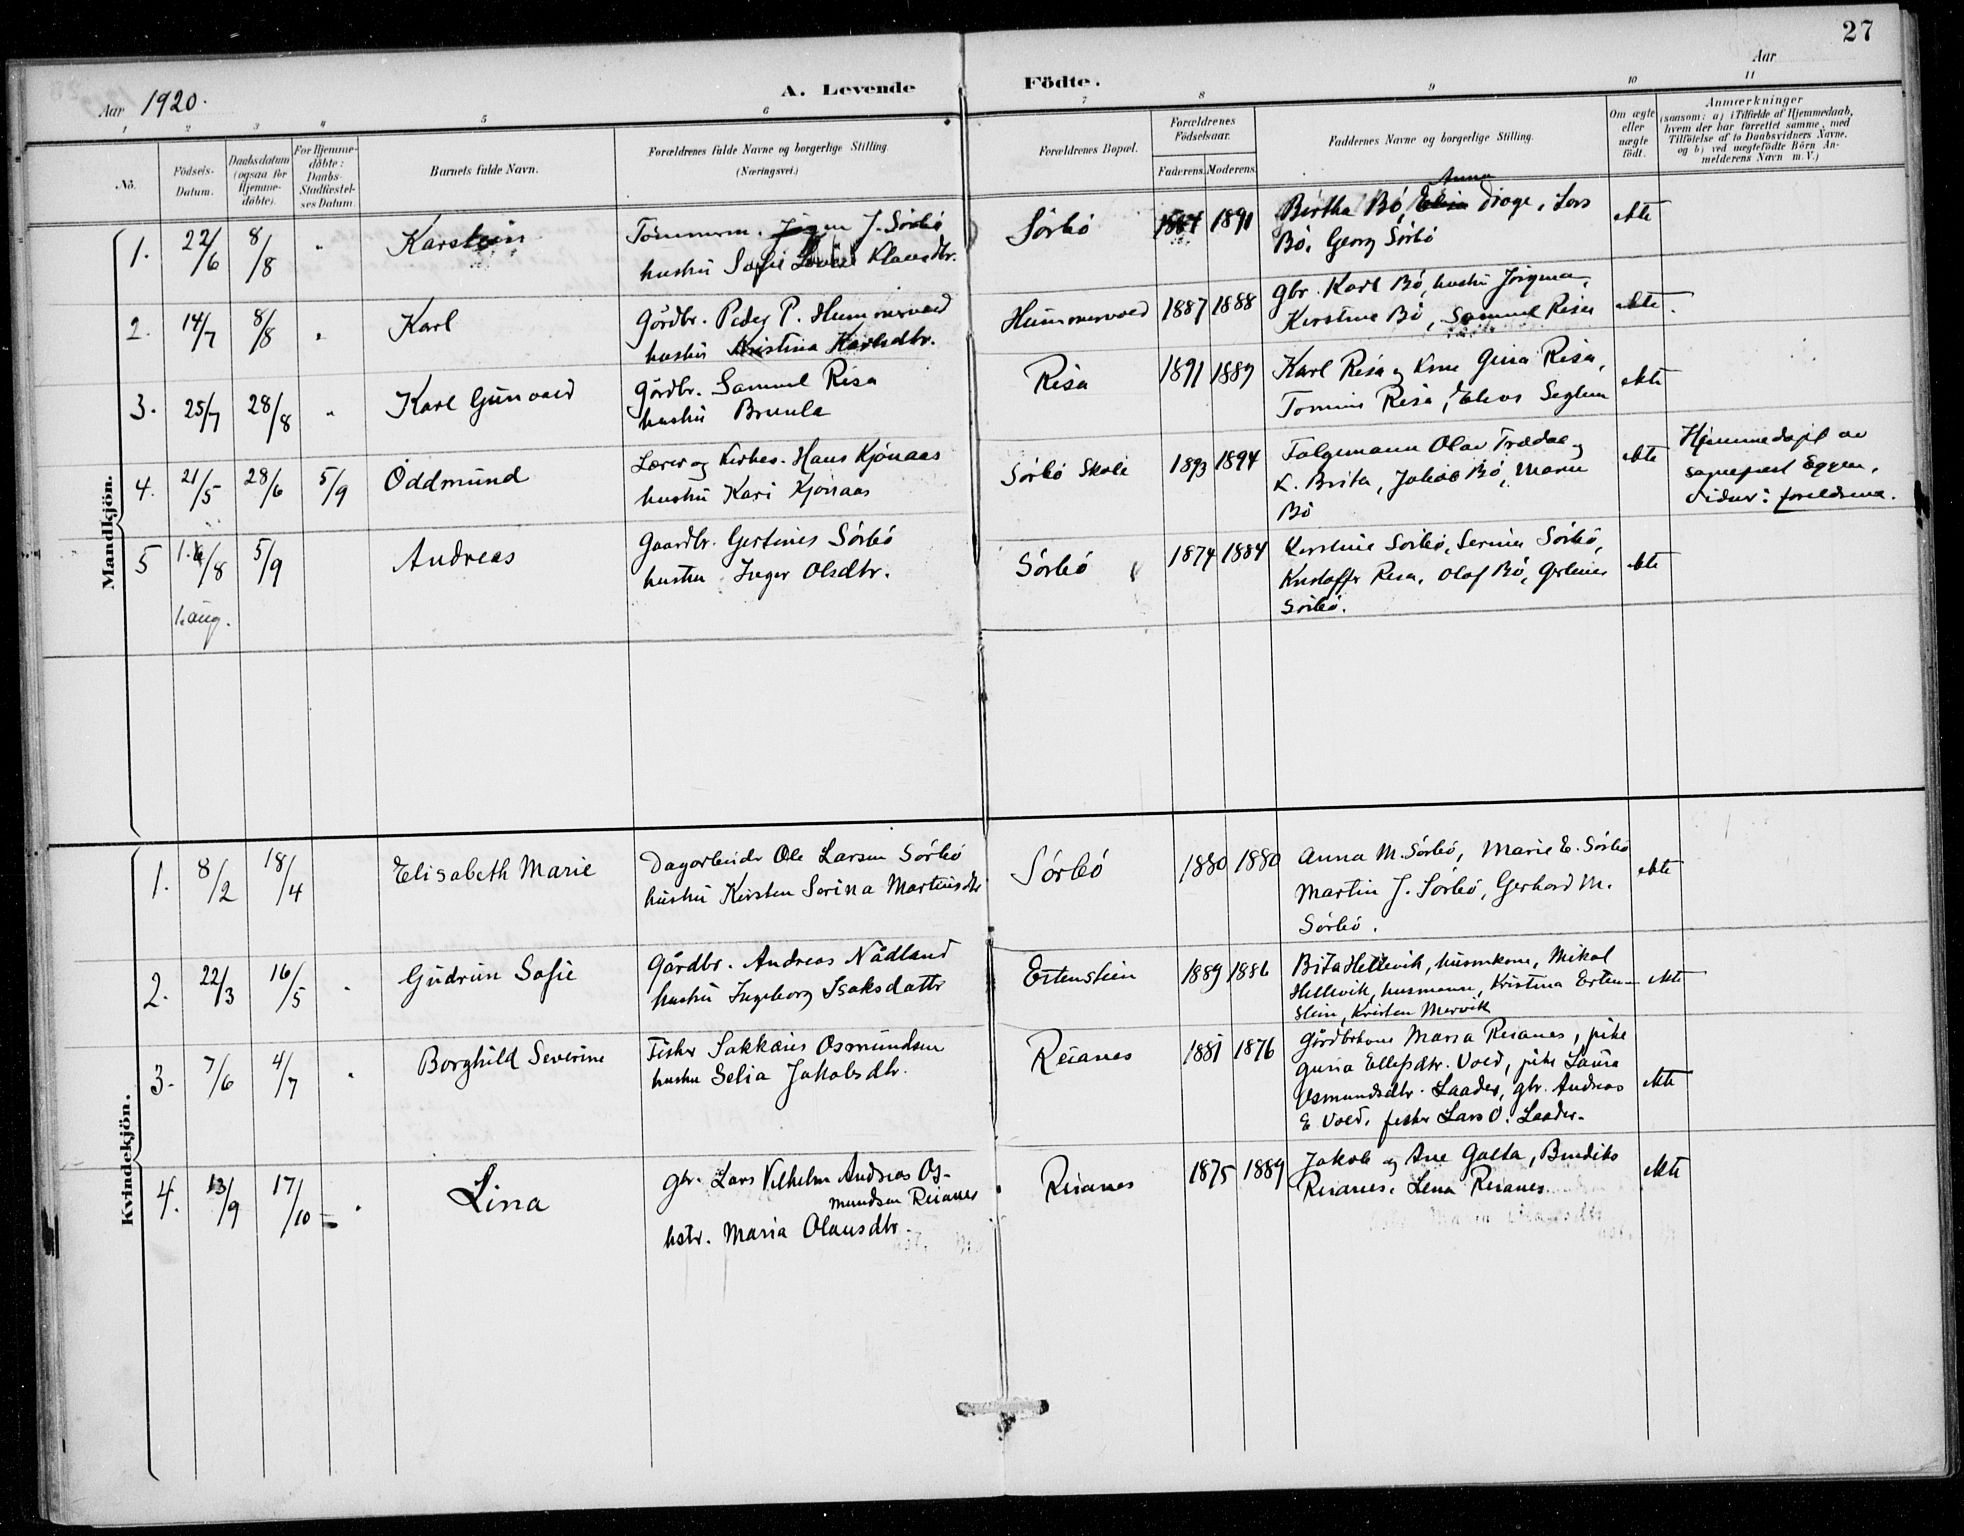 27
Aar 1920.
A. Levende Födte.
Aar
1 2 3 4 5 6 7 8 9 10 11
No.
Födsels-Datum.
Daabsdatum (ogsaa for Hjemme-döbte).
For Hjemme-döbte: Daabs-Stadfæstel-ses Datum.
Barnets fulde Navn.
Forældrenes fulde Navne og borgerlige Stilling. (Næringsvei.)
Forældrenes Bopæl.
Forældrenes Födselsaar.
Faderens. Moderens.
Faddernes Navne og borgerlige Stilling.
Om ægte eller uægte födt.
Anmærkninger
(saasom: a) i Tilfælde af Hjemmedaab,
hvem der har forrettet samme, med
Tilföielse af to Daabsvidners Navne.
og b) ved uægtefödte Börn An-
melderens Navn m. V.)
Mandkjön.
1. 22/6 8/8 " Karstein
Tömmerm. J. Sörbö
hustru Sofie Klausdtr.
Sörbö 1891
Anna
Bertha Bö, Droge, Lars
Bö, Georg Sörbö
ekte
2. 14/7 8/8 " Karl
Gårdbr. Peder P. Hummervold
hustru Kristina Karlsdtr.
Hummervold 1887 1888
gbr. Karl Bö, hustru Jörgina,
Kirstine Bö, Samuel Risa
ekte.
3. 25/7 28/8 " Karl Gunvald
Gårdbr. Samuel Risa
hustru Brunla
Risa 1891 1889
Karl Risa og Kone Gina Risa,
Tomine Risa, Elias Seglem
ekte
4. 21/5 28/6 5/9 Oddmund
Lærer og Kirkes. Hans Kjönaas
hustru Kari Kjönaas
Sörbö Skole 1893 1894
Folgemann Olav Trædal og
K. Brita, Jakob Bö, Marie
Bö
ekte
Hjemmedöpt av
sogneprest Eggen,
vidner: foreldrene.
5 1/8 5/9 Andreas
1. aug.
Gaardbr. Gertines Sörbö
hustru Inger Olsdtr.
Sörbö 1874 1884
Kirstine Sörbö, Serine Sörbö,
Kristoffer Risa, Olaf Bö, Gertines
Sörbö.
ekte
Kvindekjön.
1. 8/2 18/4 Elisabeth Marie
Dagarbeider Ole Larsen Sörbö
hustru Kirsten Serina Martinsdtr
Sörbö 1880 1880
Anna M. Sörbö, Marie E. Sörbö
Martin J. Sörbö, Gerhard M.
Sörbö.
ekte
2. 22/3 16/5 " Gudrun Sofie
Gårdbr. Andreas Nådland
hustru Ingeborg Isaksdattr
Ertenstein 1889 1886
Bita Hellevik, husmkone, Mikal
Hellevik, husmann, Kristina Erten-
stein, Kristen Mervik
ekte
3. 7/6 4/7 " Borghild Severine
Fisker Sakkarias Osmundsen
hustru Selia Jakobsdtr.
Reianes 1881 1876
Gårdbrkone Maria Reianes, pike
Guria Ellefsdtr. Vold, pike Laura
Osmundsdtr. Laader, gbr. Andreas
E. Vold, fisker Lars O. Laader.
ekte
4. 13/9 17/10 " Lina
gbr. Lars Vilhelm Andreas Os-
mundsen Reianes
hstr. Maria Olausdtr.
Reianes 1875 1889
Jakob og Ane Galta, Bendiks
Reianes, Lena Reianes.
ekte